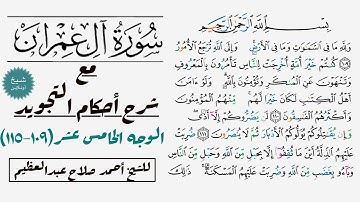 بِسْمِ اللَّهِ الرَّحْمَٰنِ الرَّحِيمِ
وَلِلَّهِ مَا فِي السَّمَٰوَٰتِ وَمَا فِي الْأَرْضِ وَإِلَى اللَّهِ تُرْجَعُ الْأُمُورُ
١٠٩ كُنتُمْ خَيْرَ أُمَّةٍ أُخْرِجَتْ لِلنَّاسِ تَأْمُرُونَ بِالْمَعْرُوفِ
وَتَنْهَوْنَ عَنِ الْمُنكَرِ وَتُؤْمِنُونَ بِاللَّهِ وَلَوْ ءَامَنَ
أَهْلُ الْكِتَٰبِ لَكَانَ خَيْرًا لَّهُم مِّنْهُمُ الْمُؤْمِنُونَ
وَأَكْثَرُهُمُ الْفَٰسِقُونَ ١١٠ لَن يَضُرُّوكُمْ إِلَّا أَذًى وَإِن
يُقَٰتِلُوكُمْ يُوَلُّوكُمُ الْأَدْبَارَ ثُمَّ لَا يُنصَرُونَ ١١١ ضُرِبَتْ
عَلَيْهِمُ الذِّلَّةُ أَيْنَ مَا ثُقِفُوا إِلَّا بِحَبْلٍ مِّنَ اللَّهِ وَحَبْلٍ مِّنَ النَّاسِ
وَبَاءُو بِغَضَبٍ مِّنَ اللَّهِ وَضُرِبَتْ عَلَيْهِمُ الْمَسْكَنَةُ ذَٰلِكَ
سورة آل عمران
مع
شيخ
أونلاين
شرح أحكام التجويد
الوجه الخامس عشر (١٠٩-١١٥)
للشيخ أحمد صلاح عبدالعظيم